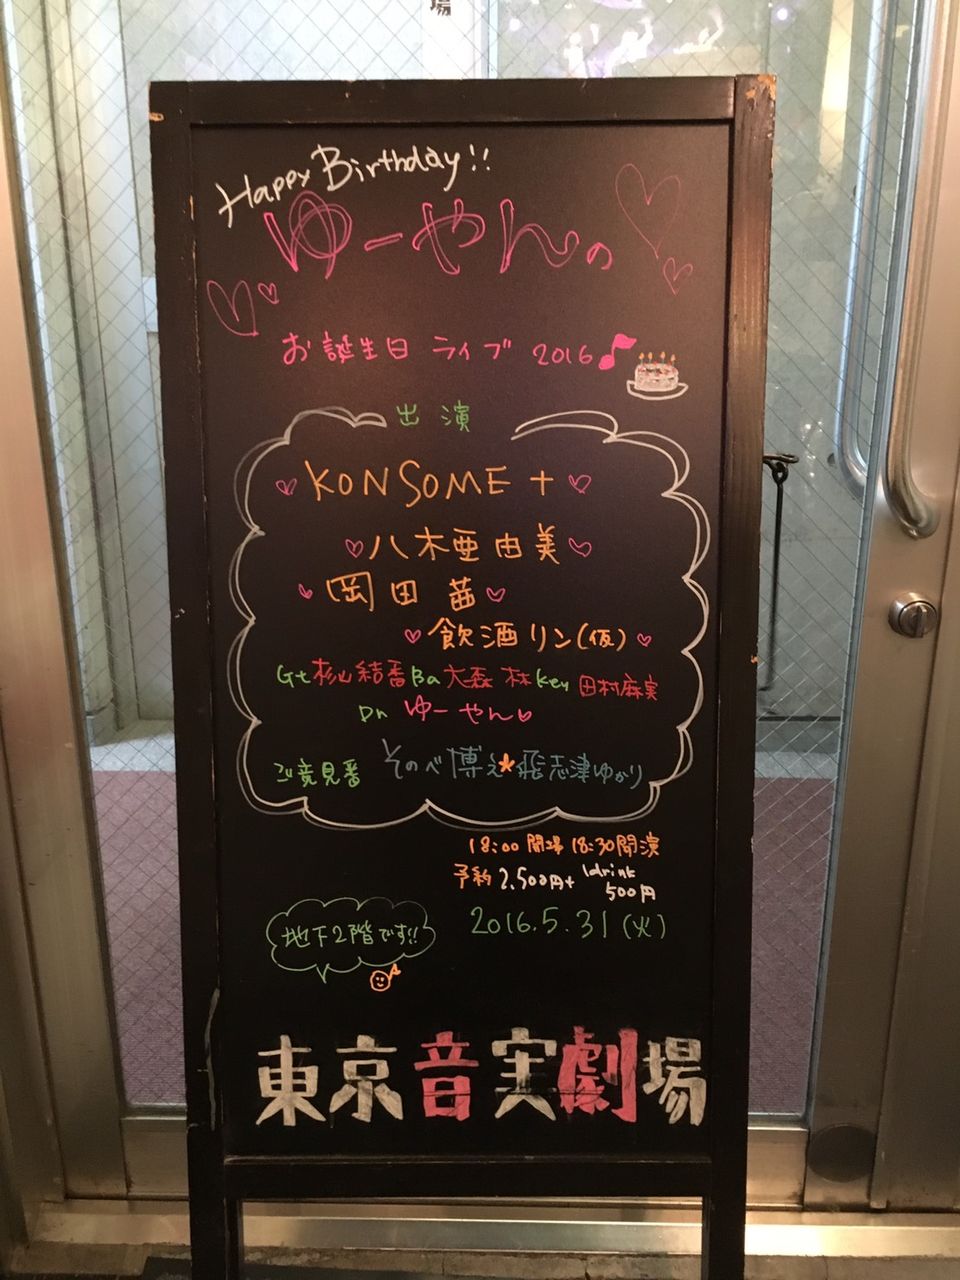 場
Happy Birthday!!
ゆーやんの
お誕生日 ライブ 2016
出演
KONSOME+
八木亜由美
岡田茜
飲酒リン(仮)
Gt 杉山結番 Ba 大森 林 Key 田村麻実
Dr ゆーやん
ご意見番 そのべ博之★飛志津ゆかり
18:00 開場 18:30 開演
予約 2,500円+ 1drink
500円
2016.5.31(火)
地下2階です!!
東京音実劇場